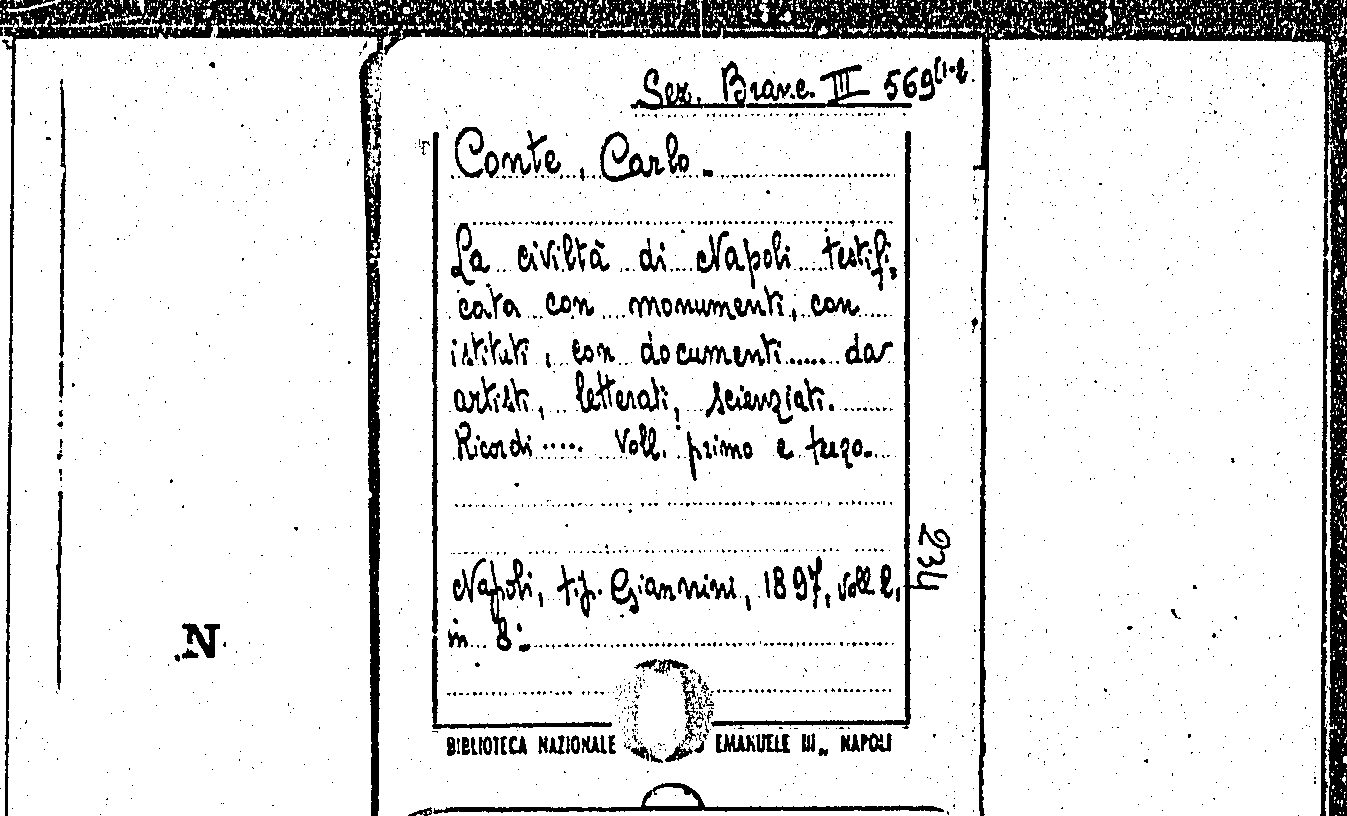 Sez. Branc. III 569(1-2
Conte, Carlo.
La civiltà di Napoli testifi,
cata con monumenti, con
istituti, con documenti..... da
artisti, letterati, scienziati.
Ricordi..... Voll. primo e terzo.
234
Napoli, tip. Giannini, 1897, voll 2,
in 8:
N
BIBLIOTECA NAZIONALE EMANUELE III„ NAPOLI